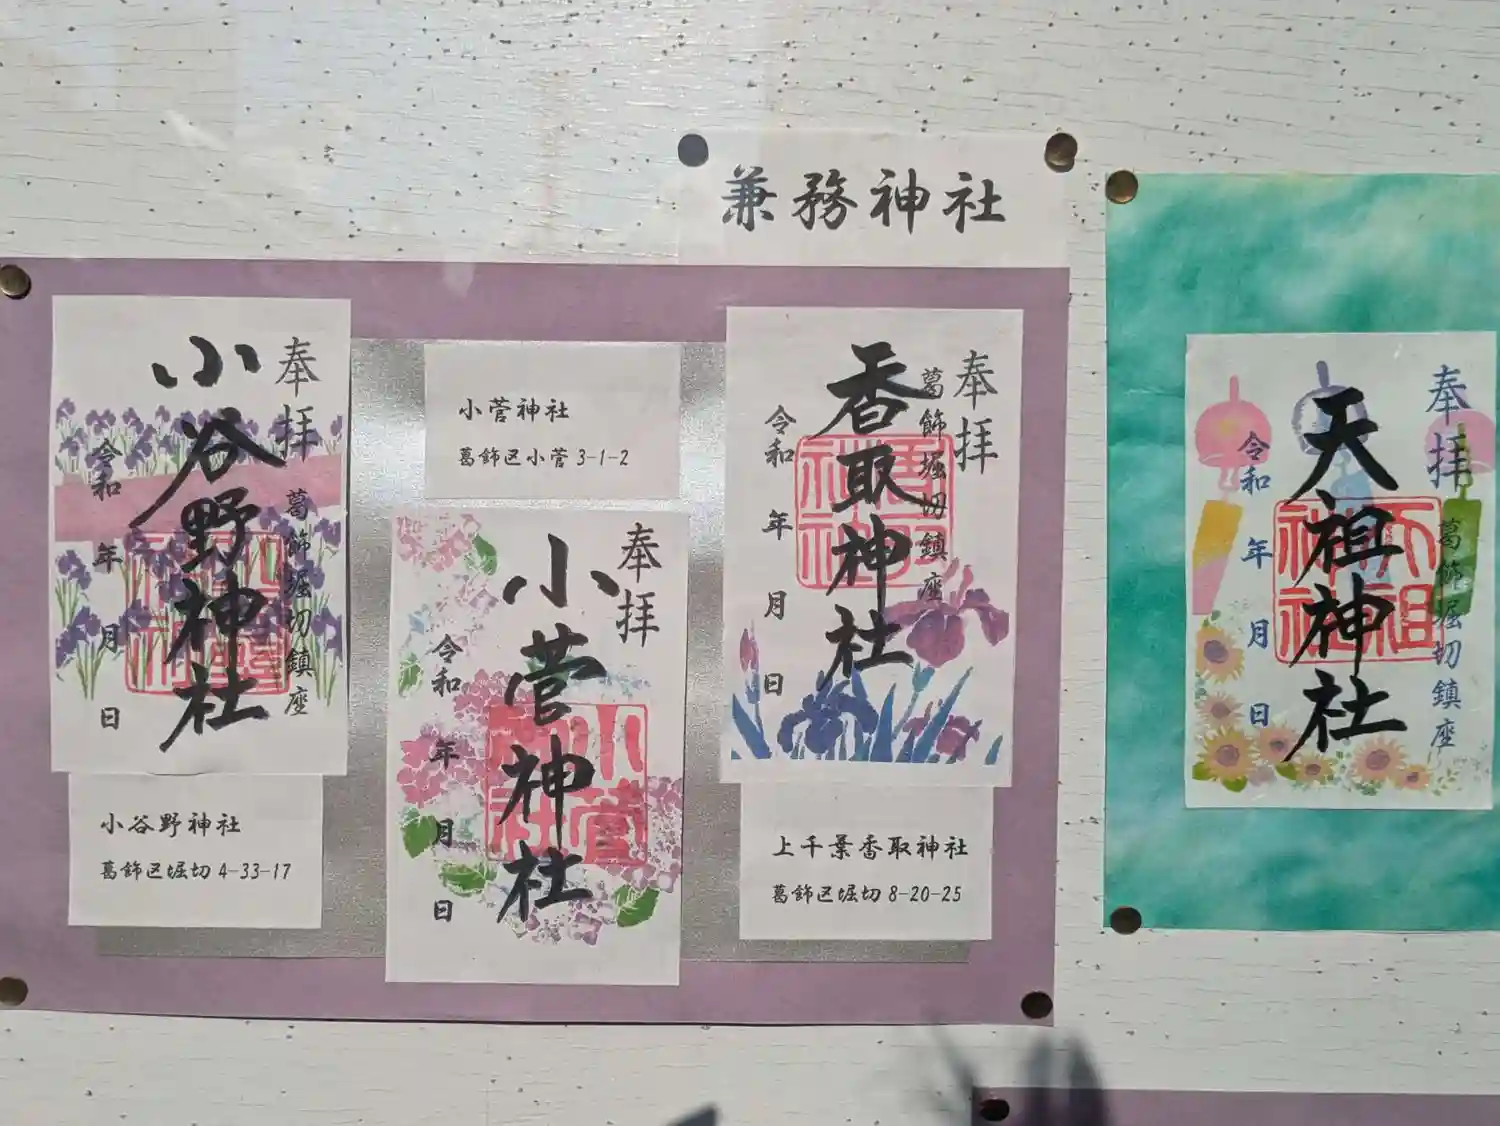 兼務神社
奉拝
葛飾堀切鎮座
小谷野神社
令和 年 月 日
小谷野神社
葛飾区堀切4-33-17
小菅神社
葛飾区小菅3-1-2
奉拝
小菅神社
小菅神社
令和 年 月 日
奉拝
葛飾堀切鎮座
香取神社
令和 年 月 日
上千葉香取神社
葛飾区堀切8-20-25
奉拝
葛飾堀切鎮座
天祖神社
天祖神社
令和 年 月 日